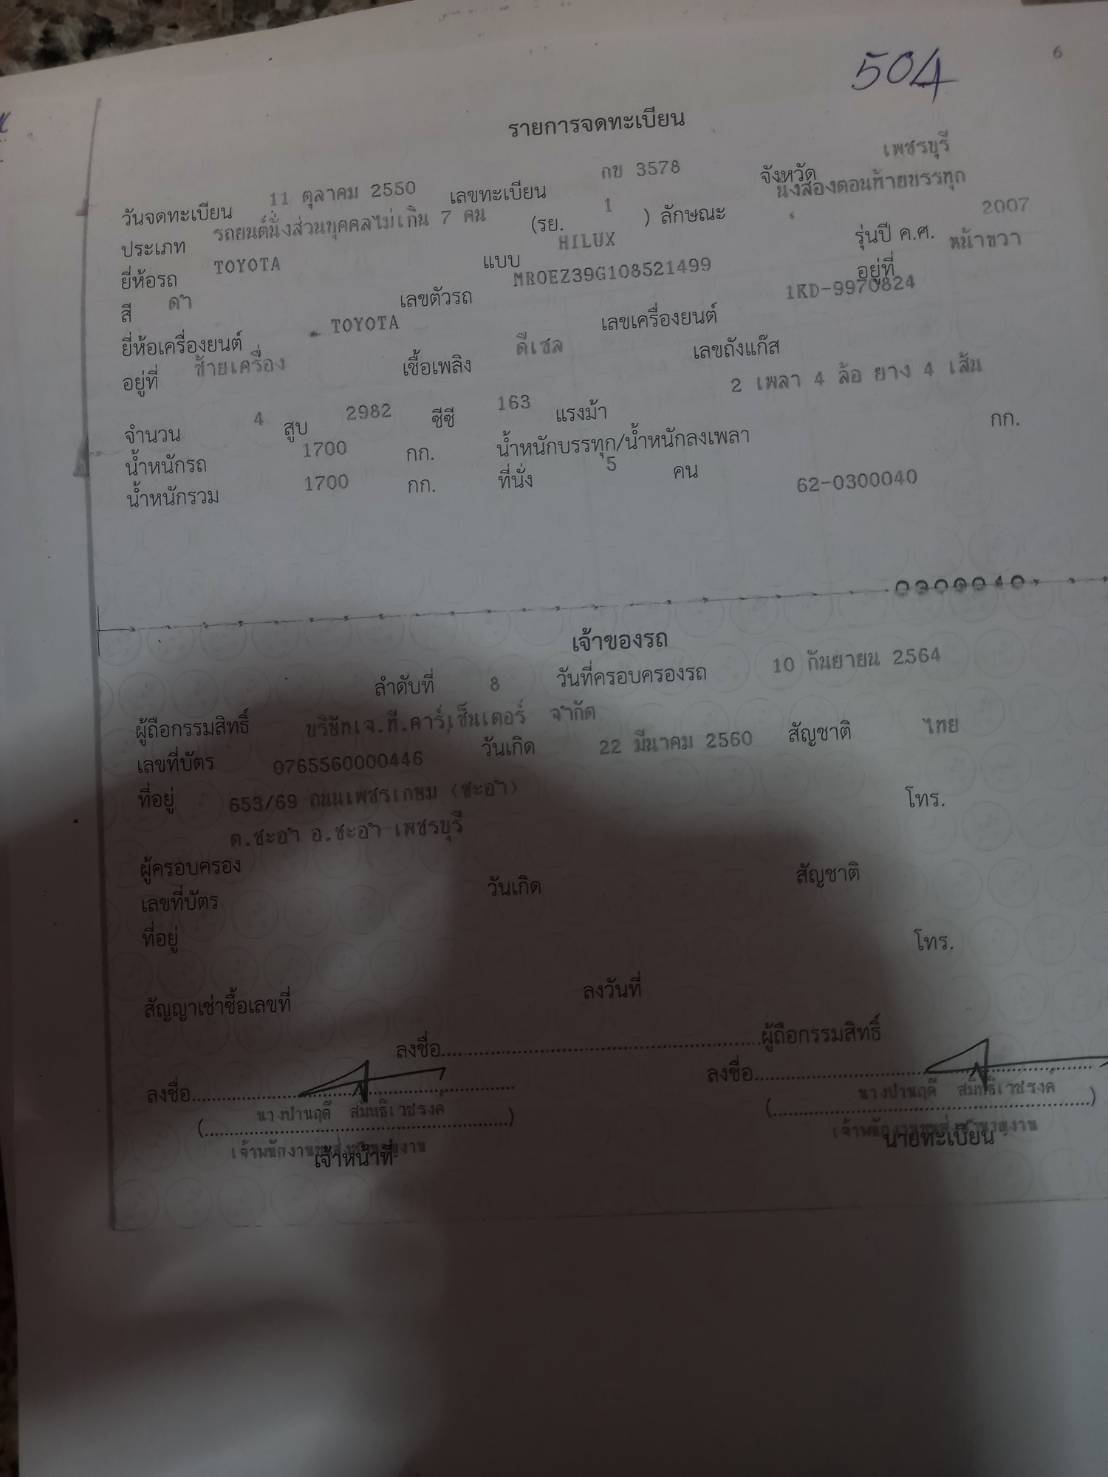 504
6
รายการจดทะเบียน
วันจดทะเบียน 11 ตุลาคม 2550 เลขทะเบียน กข 3578 จังหวัด เพชรบุรี
ประเภท รถยนต์นั่งส่วนบุคคลไม่เกิน 7 คน (รย. 1 ) ลักษณะ นั่งสองตอนท้ายบรรทุก
ยี่ห้อรถ TOYOTA แบบ HILUX รุ่นปี ค.ศ. 2007
สี ดำ เลขตัวรถ MR0EZ39G108521499 อยู่ที่ หน้าขวา
ยี่ห้อเครื่องยนต์ TOYOTA เลขเครื่องยนต์ 1KD-9970824
อยู่ที่ ซ้ายเครื่อง เชื้อเพลิง ดีเซล เลขถังแก๊ส
จำนวน 4 สูบ 2982 ซีซี 163 แรงม้า 2 เพลา 4 ล้อ ยาง 4 เส้น
น้ำหนักรถ 1700 กก. น้ำหนักบรรทุก/น้ำหนักลงเพลา กก.
น้ำหนักรวม 1700 กก. ที่นั่ง 5 คน 62-0300040
0300040
เจ้าของรถ
ลำดับที่ 8 วันที่ครอบครองรถ 10 กันยายน 2564
ผู้ถือกรรมสิทธิ์ บริษัทเจ.ที.คาร์เซ็นเตอร์ จำกัด
เลขที่บัตร 0765560000446 วันเกิด 22 มีนาคม 2560 สัญชาติ ไทย
ที่อยู่ 653/69 ถนนเพชรเกษม (ชะอำ) โทร.
ต.ชะอำ อ.ชะอำ เพชรบุรี
ผู้ครอบครอง
เลขที่บัตร วันเกิด สัญชาติ
ที่อยู่ โทร.
สัญญาเช่าซื้อเลขที่ ลงวันที่
ลงชื่อ ผู้ถือกรรมสิทธิ์
ลงชื่อ ลงชื่อ
(นางปานฤดี) (นางปานฤดี)
เจ้าหน้าที่ นายทะเบียน